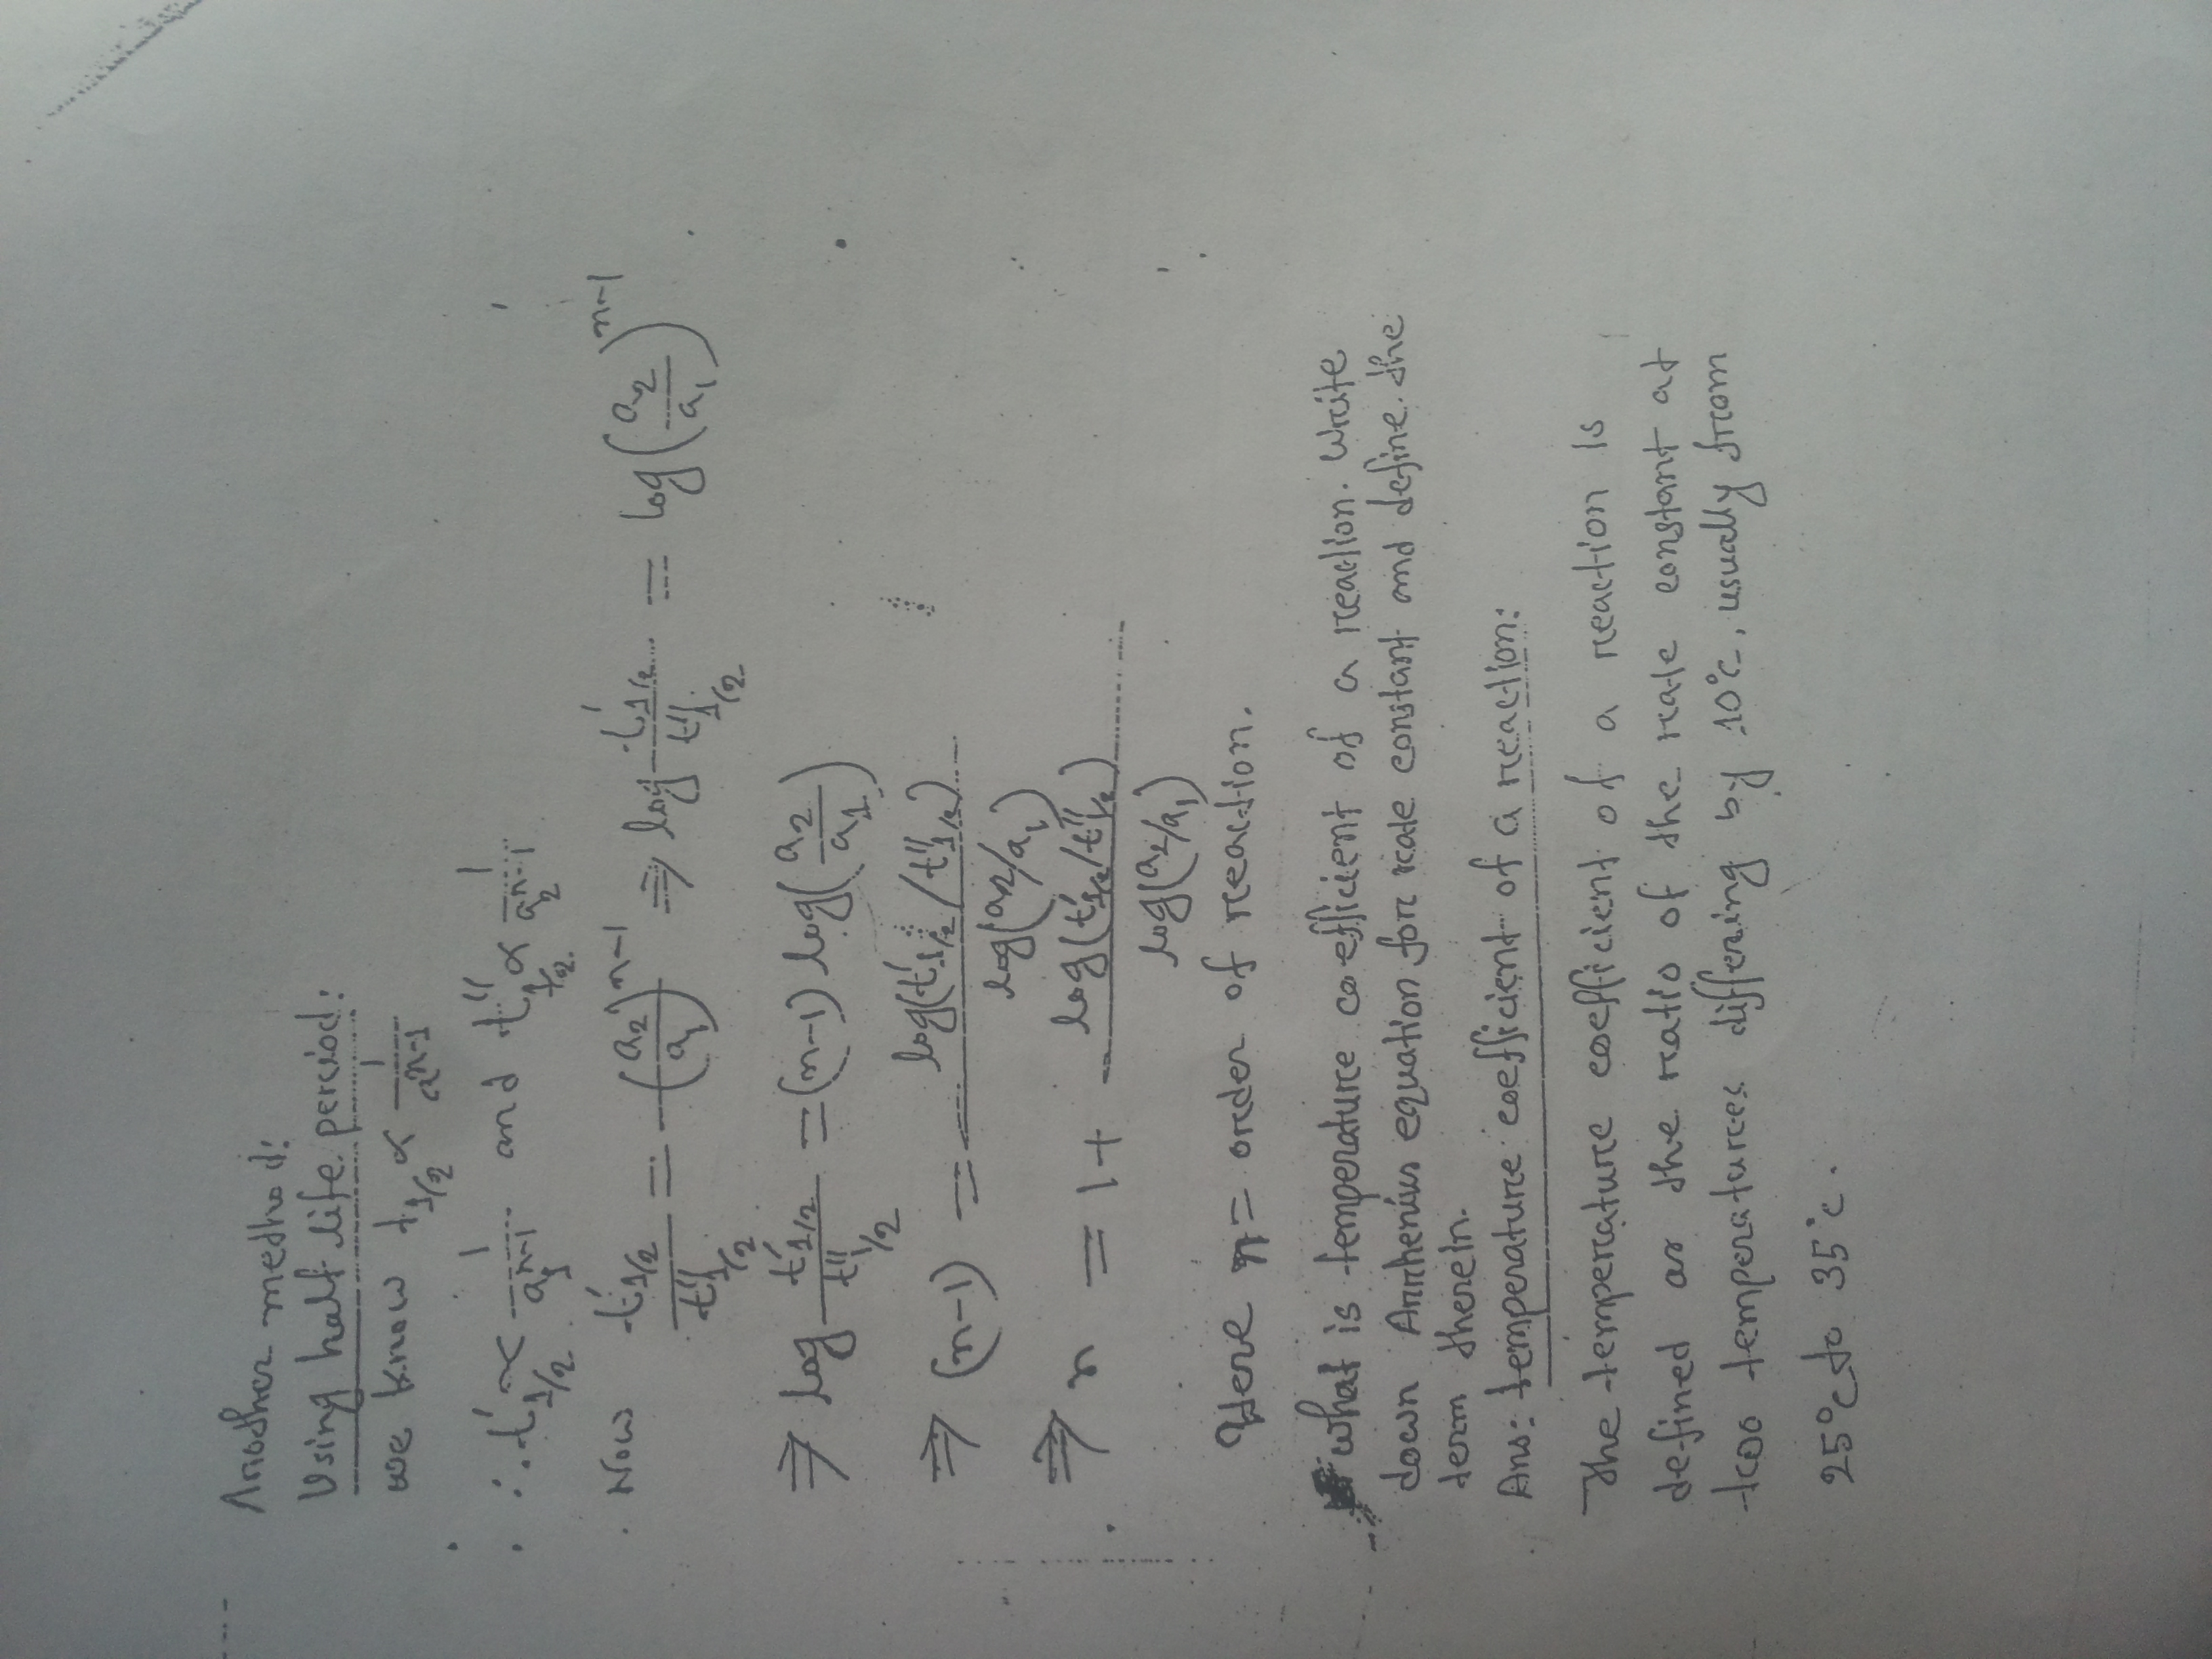 Another method:
Using half life period:
we know t1/2 ∝ 1/a^(n-1)
∴ t'1/2 ∝ 1/a1^(n-1) and t''1/2 ∝ 1/a2^(n-1)
Now t'1/2 / t''1/2 = (a2/a1)^(n-1) ⇒ log t'1/2 / t''1/2 = log(a2/a1)^(n-1)
⇒ log t'1/2 / t''1/2 = (n-1) log(a2/a1)
⇒ (n-1) = log(t'1/2 / t''1/2) / log(a2/a1)
⇒ n = 1 + log(t'1/2 / t''1/2) / log(a2/a1)
Here n = order of reaction.
what is temperature coefficient of a reaction. Write
down Arrhenius equation for rate constant and define the
term therein.
Ans: temperature coefficient of a reaction:
The temperature coefficient of a reaction is
defined as the ratio of the rate constant at
two temperatures differing by 10°c, usually from
25°c to 35°c.